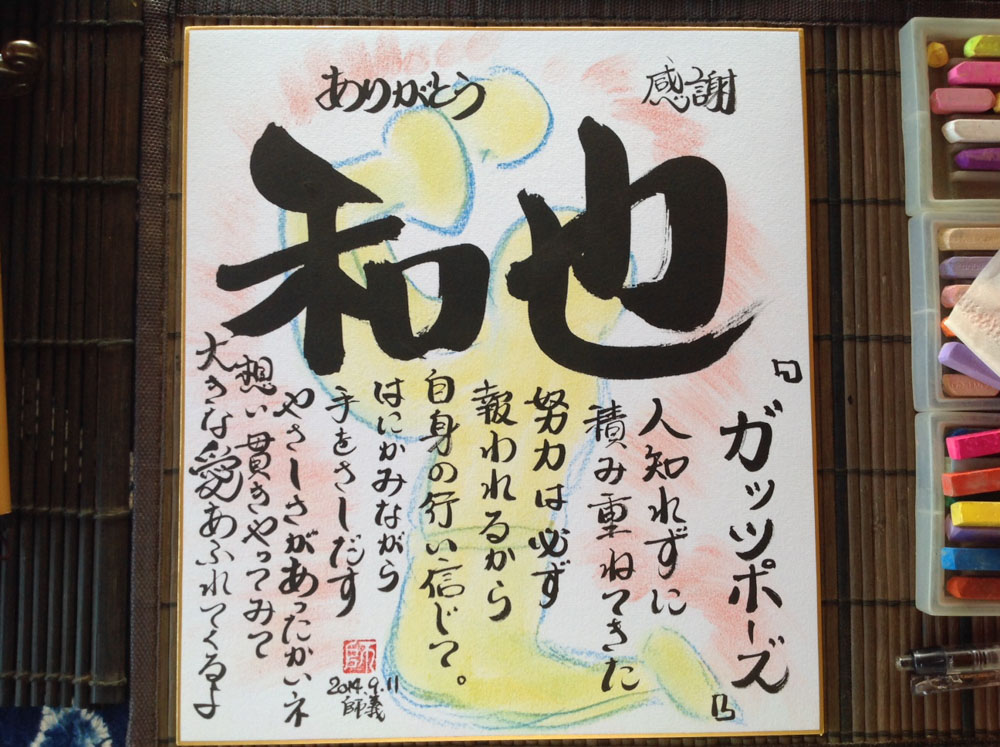 感謝
ありがとう
和也
『ガッツポーズ』
人知れずに
積み重ねてきた
努力は必ず
報われるから
自身の行い信じて。
はにかみながら
手をさしだす
やさしさがあったかいネ
想い貫きやってみて
大きな愛あふれてくるよ
師
2014.9.11
師義